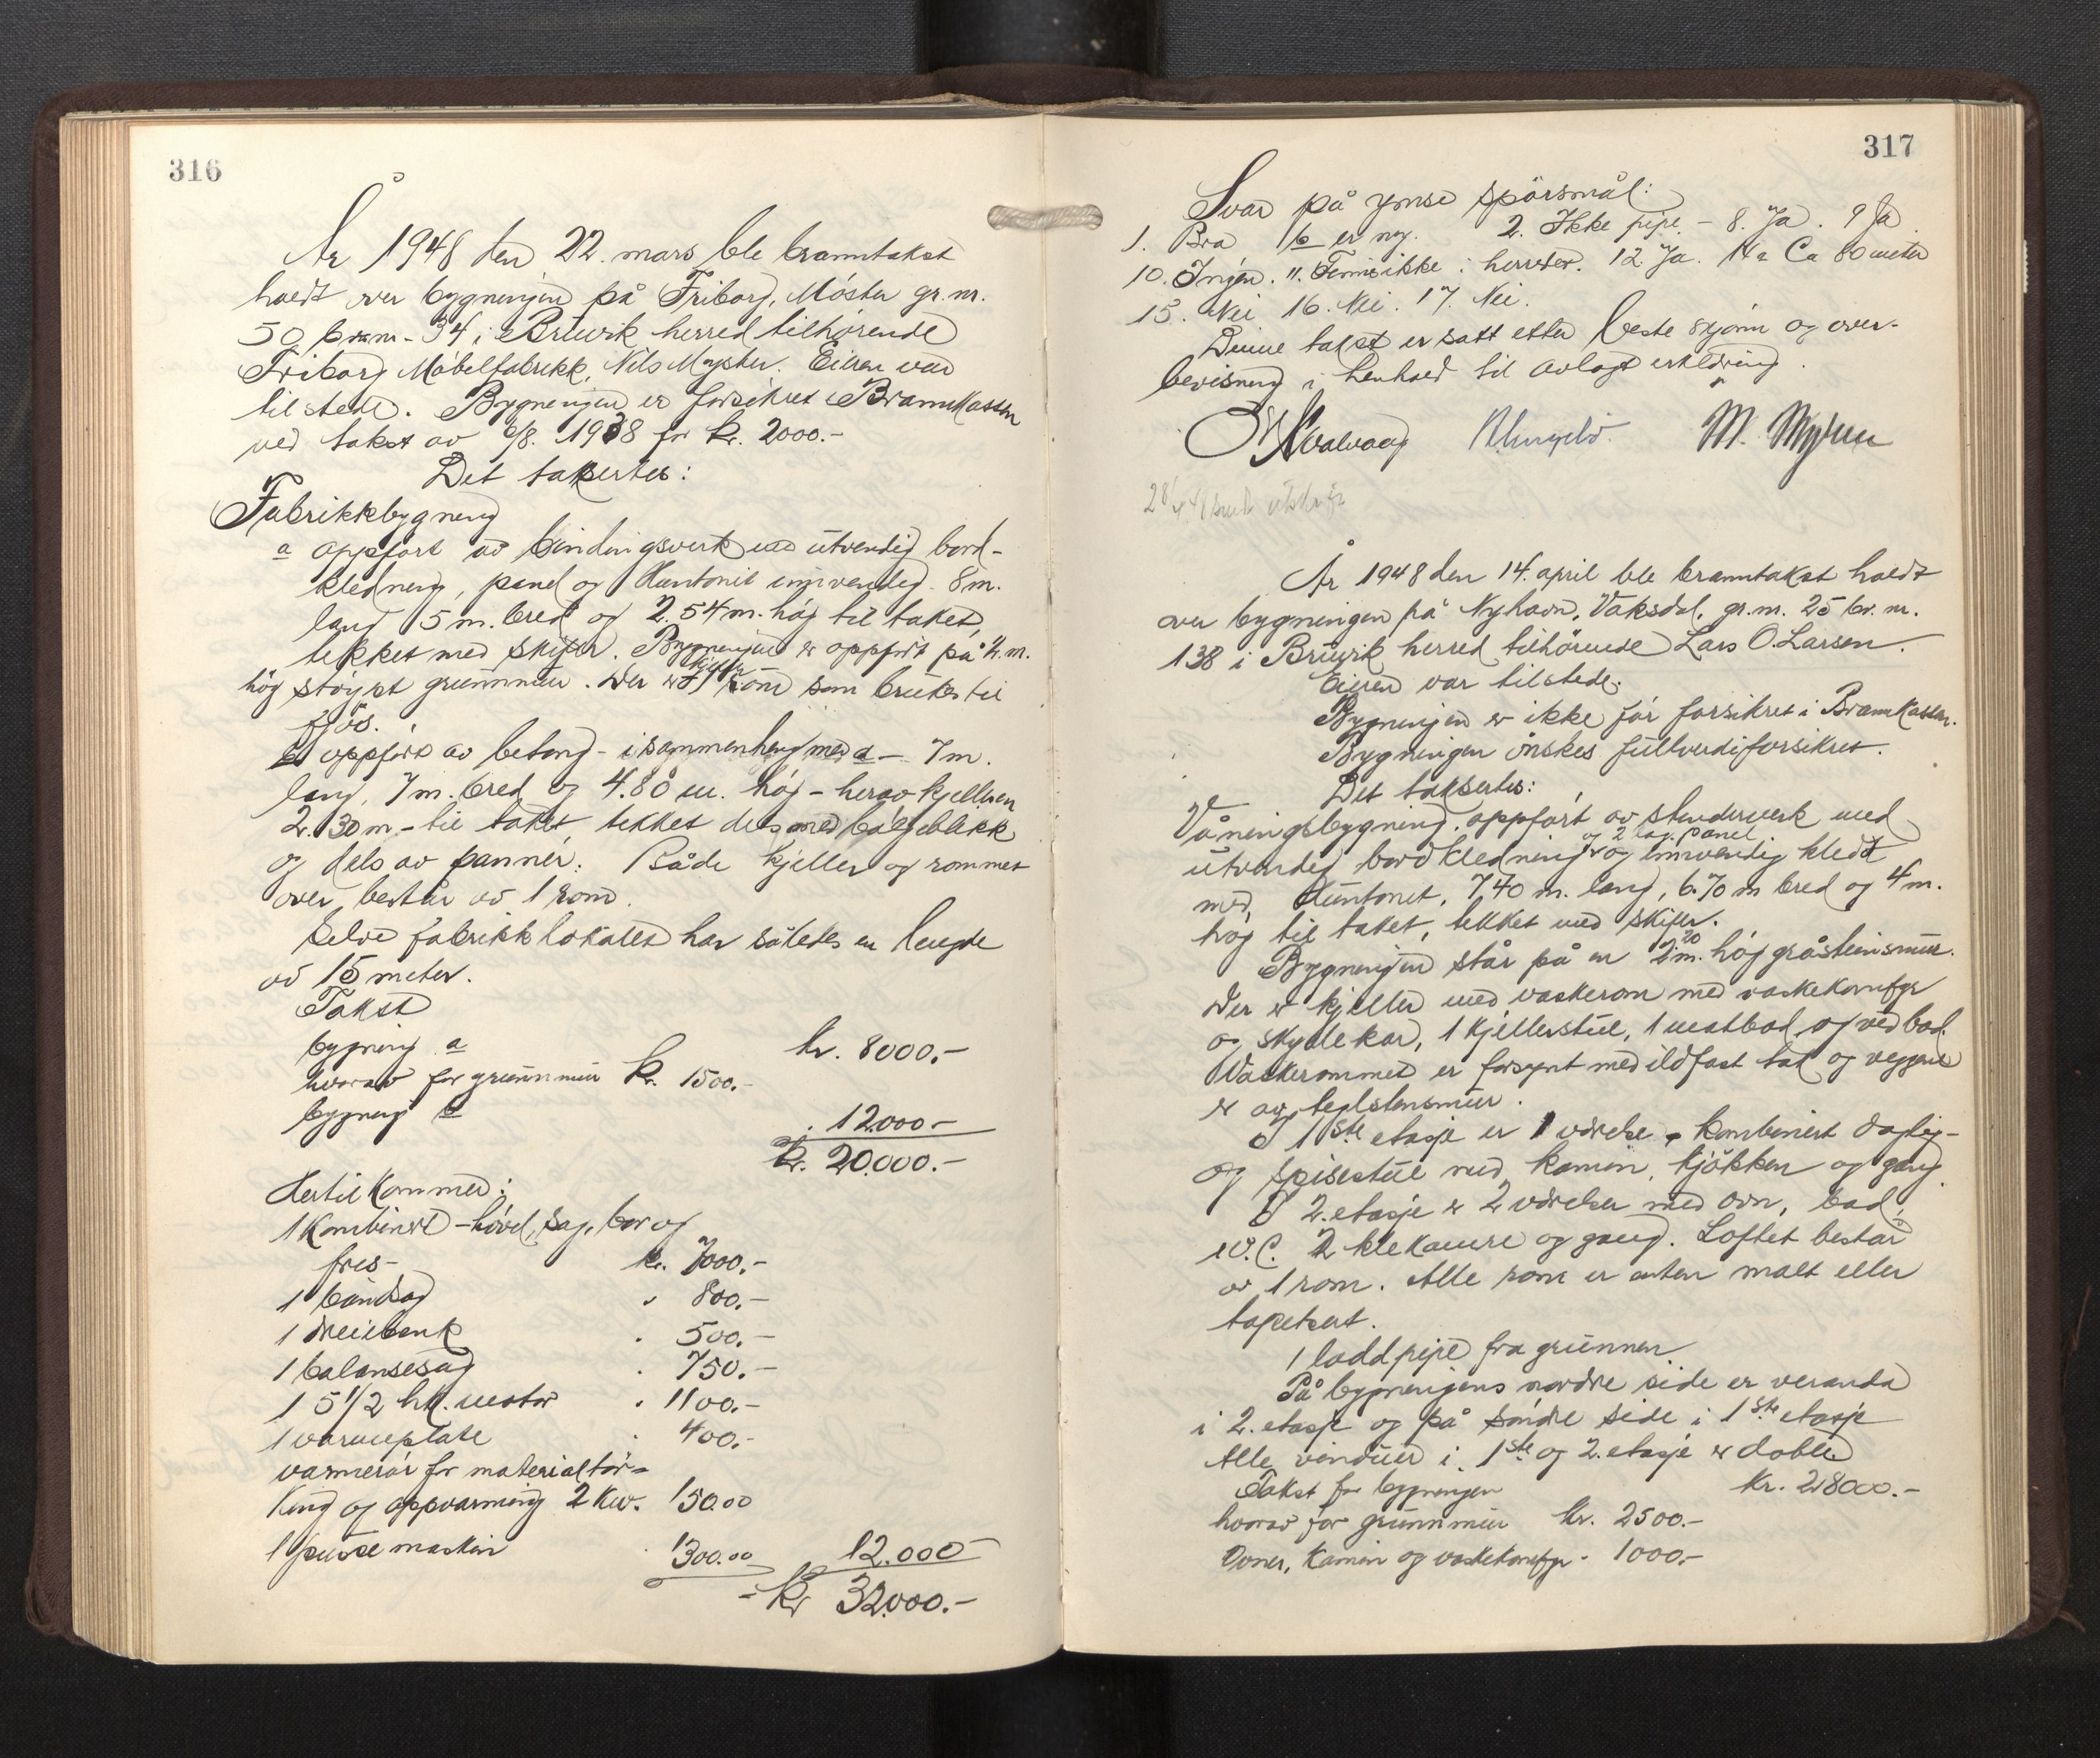 316
År 1948 den 22. mars ble branntakst
holdt over bygningen på Friborg, Møster gr.nr.
50 br.nr. 34 i Bruvik herred tilhørende
Friborg Møbelfabrikk, Nils Myster. Eieren var
tilstede. Bygningen er forsikret i Brannkassen
ved takst av 6/8. 1938 for kr. 2000.-
Det taksertes:
Fabrikkbygning
a oppført av bindingsverk med utvendig bord-
kledning, panel og Huntonit innvendig. 8 m.
lang 5 m. bred og 2.54 m. høg til taket,
tekket med skifer. Bygningen er oppført på
høg støypt grunnmur. Der er 1 kjeller rom som brukes til
fjøs.
b oppført av betong - i sammenheng med a - 7 m.
lang, 7 m. bred og 4.80 m. høg - herav kjelleren
2.30 m - til taket, tekket dels med bølgeblikk
og dels av panner. Både kjeller og rommet
over består av 1 rom.
Selve fabrikklokalet har således en lengde
av 15 meter.
Takst
bygning a kr. 8000.-
hvorav for grunnmur kr. 1500.-
bygning b . 12000.-
kr. 20.000.-
Hertil kommer:
1 kombinert - høvel, sag, bor og
fres - kr. 7000.-
1 båndsag " 800.-
1 dreiebenk . 500.-
1 balansesag . 750.-
1 5 1/2 hk. motor . 1100.-
1 varmeplate . 400.-
varmerør for materialtør-
king og oppvarming 2 kw. 150.00
1 pussemaskin . 1300.00 12.000
Kr 32.000.-
317
Svar på ymse spörsmål:
1. Bra 6 er ny. 2. Ikke pipe - 8. Ja. 9 Ja
10. Ingen. 11. Finnes ikke i herredet. 12. Ja. 14a Ca 80 meter
15. Nei 16. Nei. 17. Nei.
Denne takst er satt etter beste skjønn og over-
bevisning i henhold til avlagt erklæring.
M. Myren
År 1948 den 14. april ble branntakst holdt
over bygningen på Nyhavn, Vaksdal, gr.nr. 25 br.nr.
138 i Bruvik herred tilhörende Lars O. Larsen.
Eieren var tilstede.
Bygningen er ikke før forsikret i Brannkassen.
Bygningen önskes fullverdiforsikret.
Det takseртes:
Våningsbygning, oppført av stenderverk med
og 2 lag panel
utvendig bordkledning og innvendig kledt
med Huntonit, 7.40 m. lang, 6.70 m bred og 4 m.
høg til taket, tekket med skifer.
Bygningen står på en 2.20 m. høg gråsteinsmur.
Der er kjeller med vaskerom med vaskekomfyr
og skyllekar, 1 kjellerstue, 1 matbod og vedbod.
Vaskerommet er forsynt med ildfast tak og veggene
er av teglstensmur.
I 1ste etasje er 1 værelse, kombinert daglig-
og spisestue med kamin, kjökken og gang.
I 2. etasje er 2 værelser med ovn, bad,
W.C. 2 klekamre og gang. Loftet består
av 1 rom. Alle rom er enten malt eller
tapetsert.
1 loddpipe fra grunnen.
På bygningens nordre side er veranda
i 2. etasje og på søndre side i 1ste etasje
Alle vinduer i 1ste og 2. etasje er doble
Takst for bygningen kr. 28000.-
hvorav for grunnmur kr. 2500.-
Ovner, kamin og vaskekomfyr - 1000.-